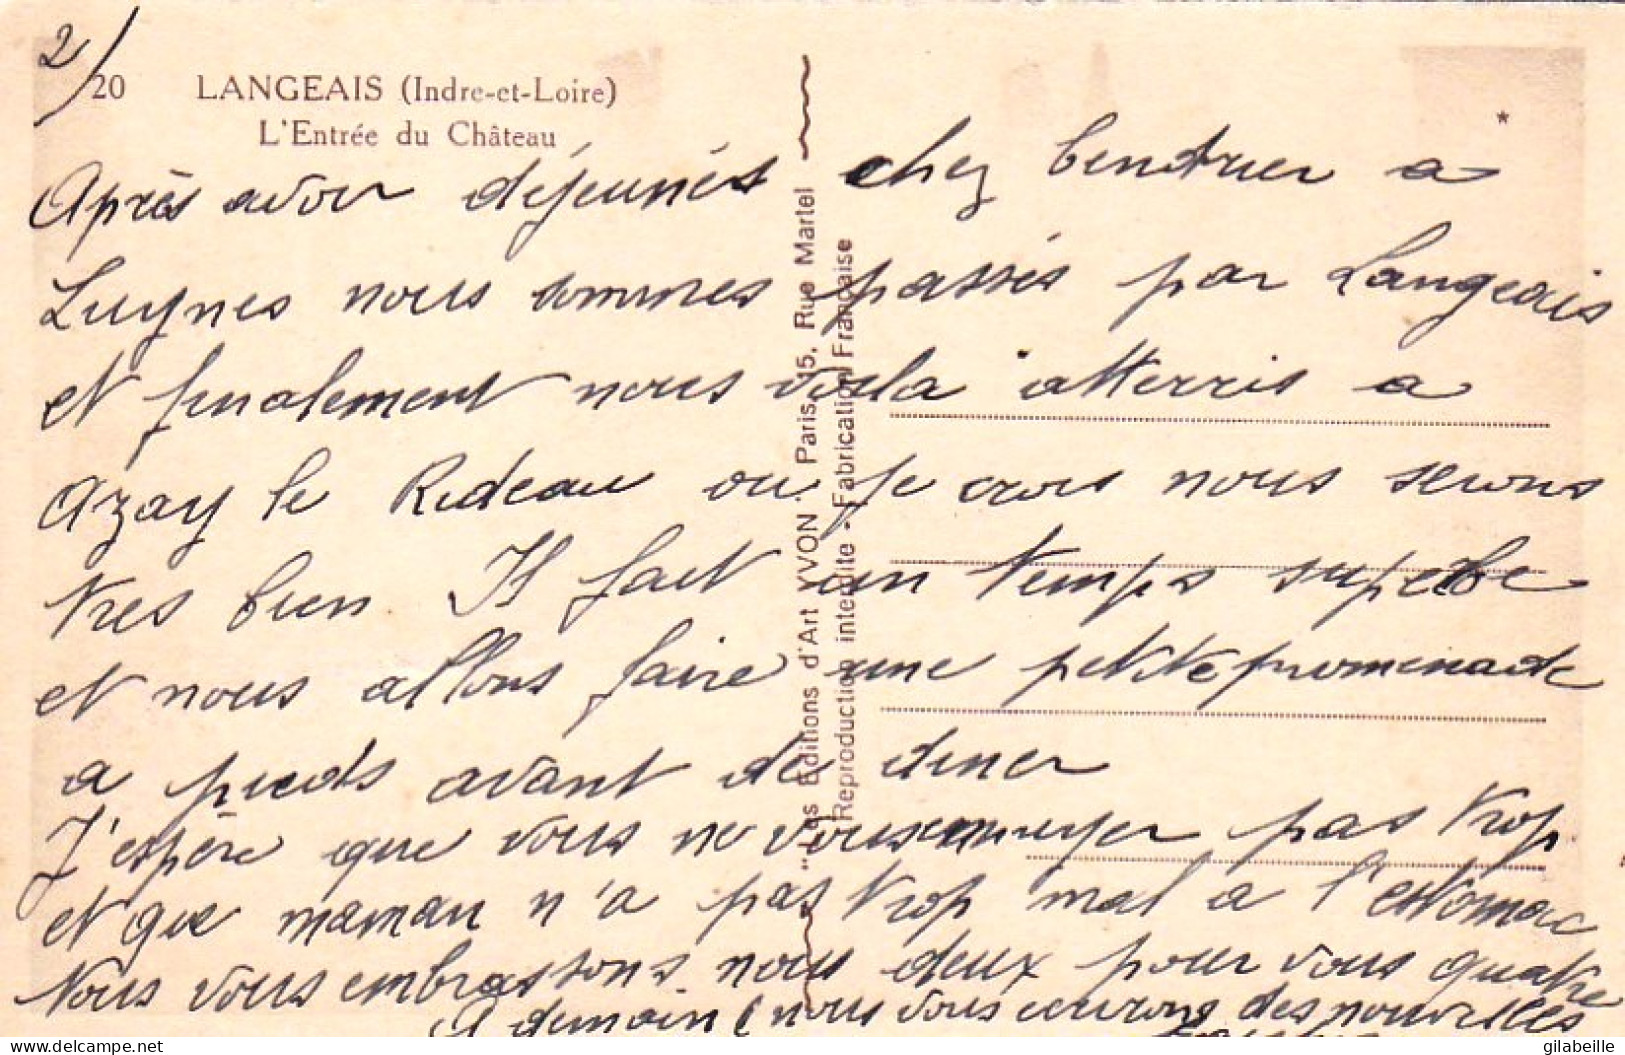 2/
20 LANGEAIS (Indre-et-Loire)
L'Entrée du Château
*
Après avoir déjeunés chez bendrier a
Luynes nous sommes passés par Langeais
et finalement nous voila atterris a
Azay le Rideau ou je crois nous serons
tres bien Il fait un temps superbe
et nous allons faire une petite promenade
a pieds avant de diner
J'espère que vous ne vous ennuyer pas trop
et que maman n'a pas trop mal a l'estomac
Nous vous embrassons nous deux pour vous quatre
A demain (nous vous des nouvelles
"Les Editions d'Art YVON. Paris, 15, Rue Martel
Reproduction interdite - Fabrication Française
delcampe.net
gilabeille